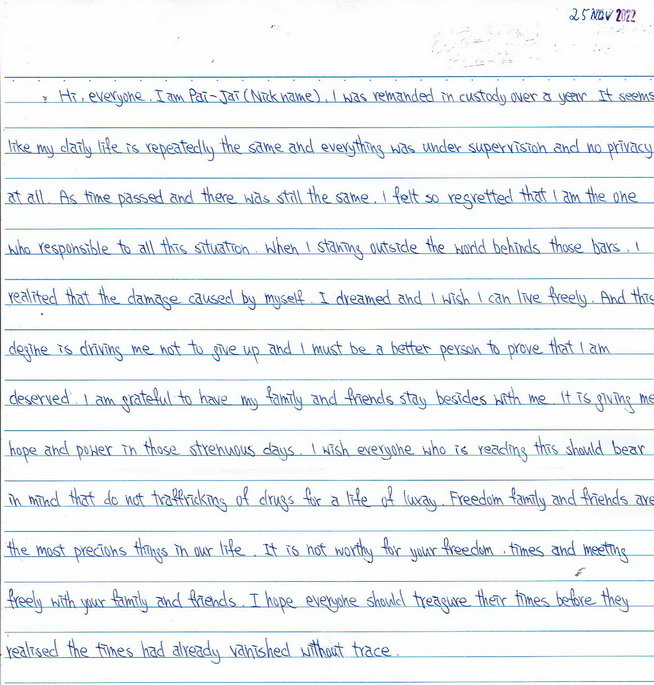 25 NOV 2022
Hi, everyone. I am Pai-Jai (Nick name). I was remanded in custody over a year. It seems
like my daily life is repeatedly the same and everything was under supervision and no privacy
at all. As time passed and there was still the same. I felt so regretted that I am the one
who responsible to all this situation. When I staning outside the world behinds those bars. I
realited that the damage caused by myself. I dreamed and I wish I can live freely. And this
degine is driving me not to give up and I must be a better person to prove that I am
deserved. I am grateful to have my family and friends stay besides with me. It is giving me
hope and power in those strenuous days. I wish everyone who is reading this should bear
in mind that do not traffricking of drugs for a life of luxay. Freedom family and friends are
the most precions things in our life. It is not worthy for your freedom, times and meeting
freely with your family and friends. I hope everyone should treagure their times before they
realised the times had already vanished without trace.